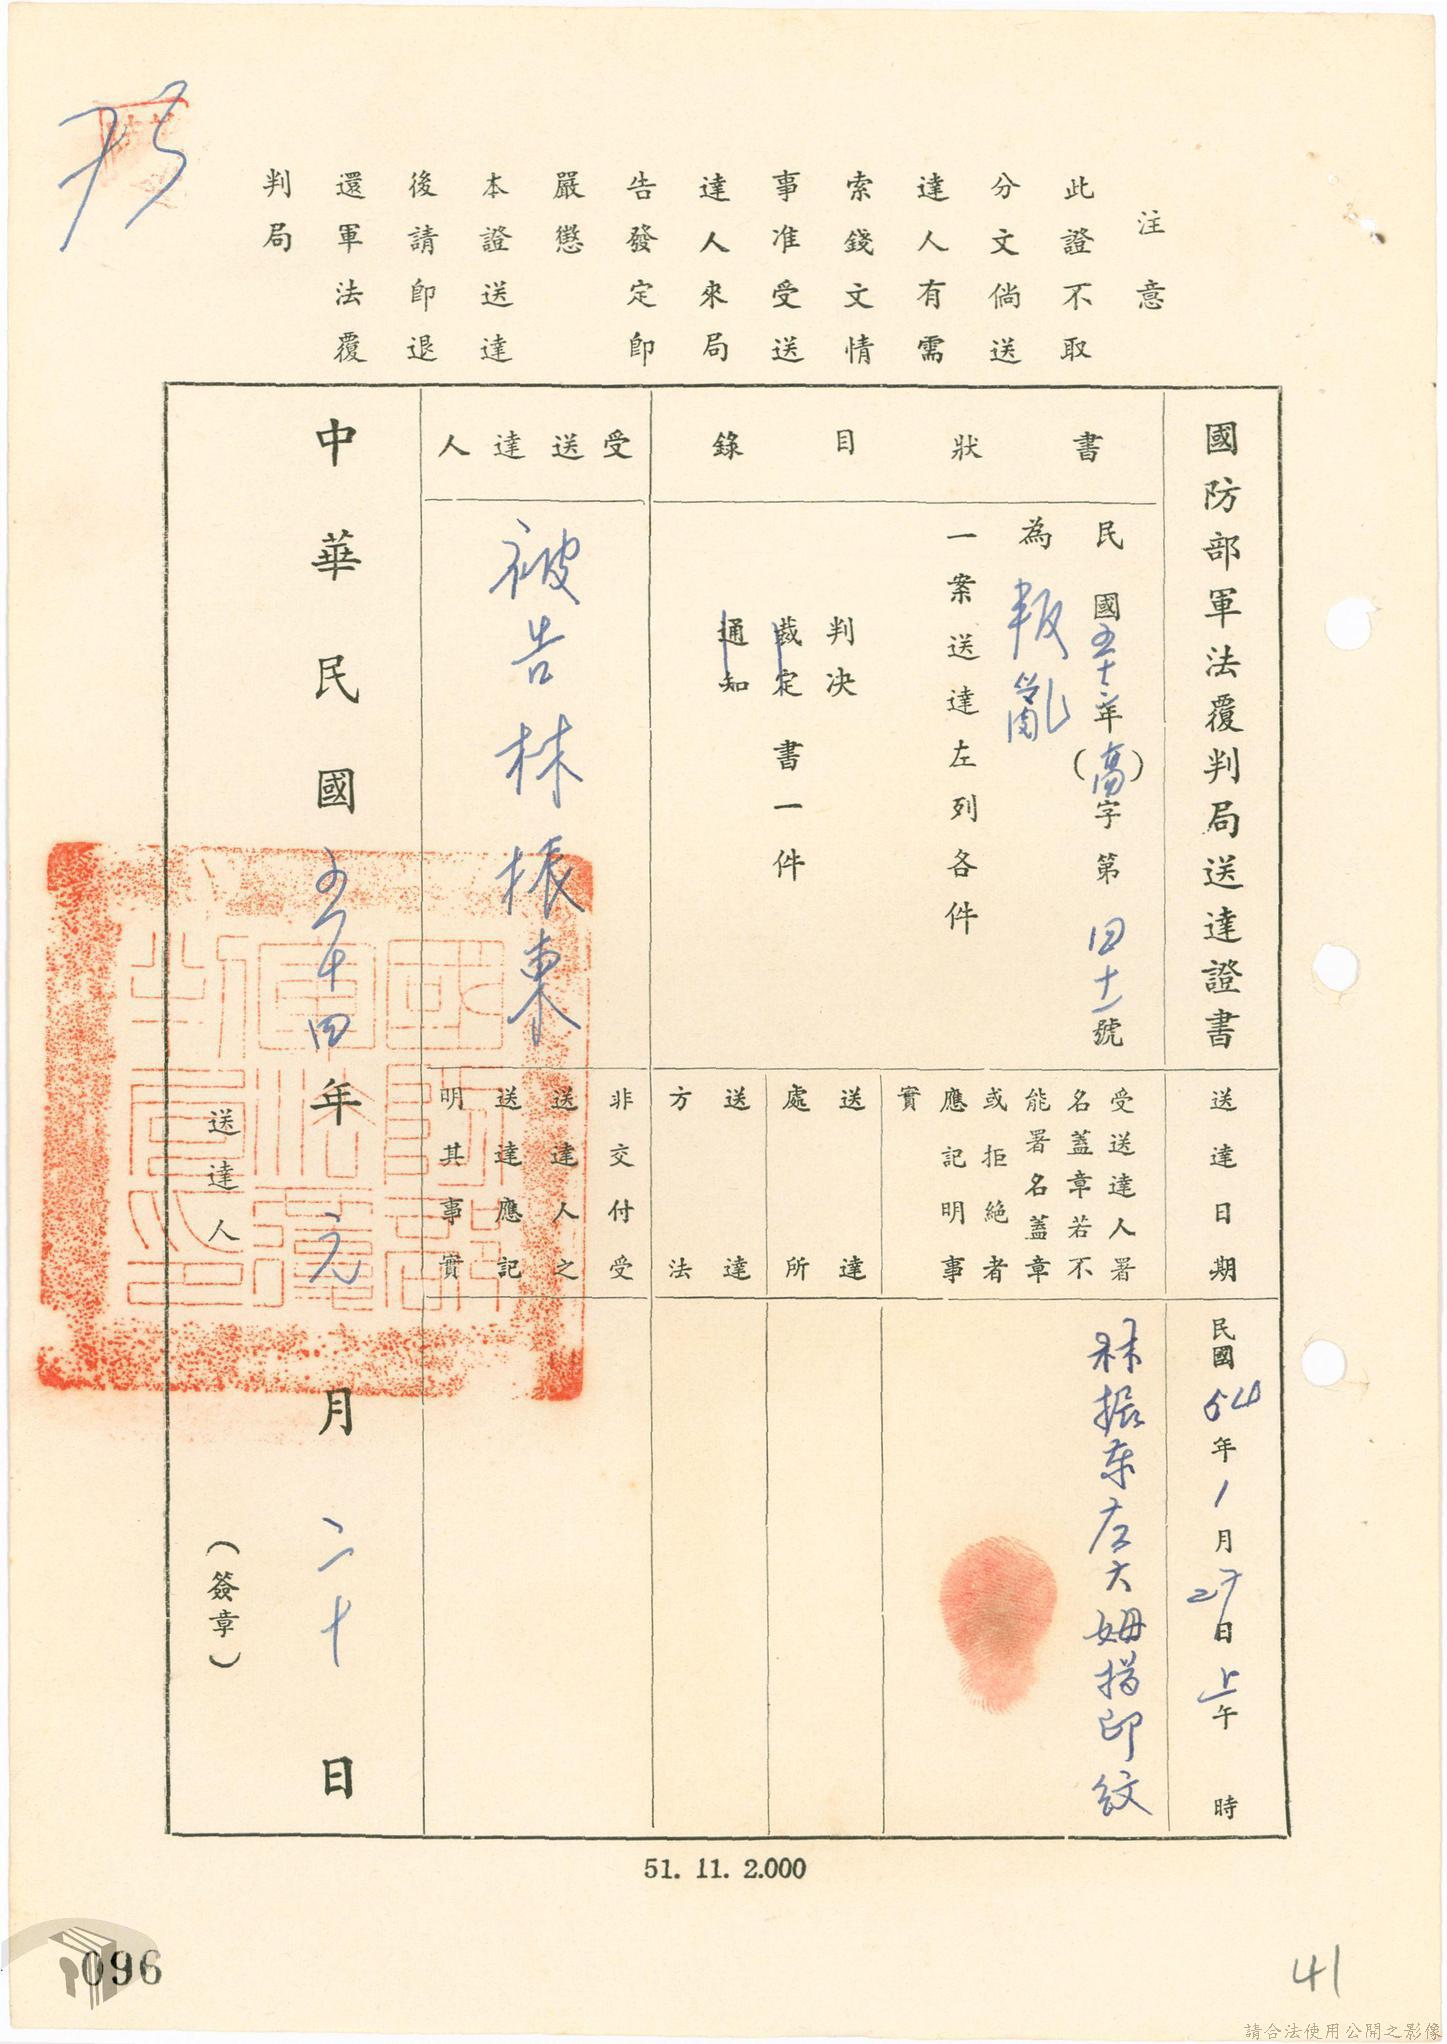 注意
此證不取
分文倘送
達人有需
索錢文情
事准受送
達人來局
告發定即
嚴懲
本證送達
後請即退
還軍法覆
判局
國防部軍法覆判局送達證書
書狀目錄
民國五十三年(高)字第四十一號
為叛亂
一案送達左列各件
判決
裁定書一件
通知
受送達人
被告林振東
送達日期
民國54年1月27日上午 時
受送達人署
名蓋章若不
能署名蓋章
或拒絕者
應記明事
實
林振東左大姆指印紋
送達
處所
送達
方法
非交付受
送達人之
送達應記
明其事實
中華民國五十四年元月二十日
送達人
(簽章)
51. 11. 2.000
096
41
請合法使用公開之影像